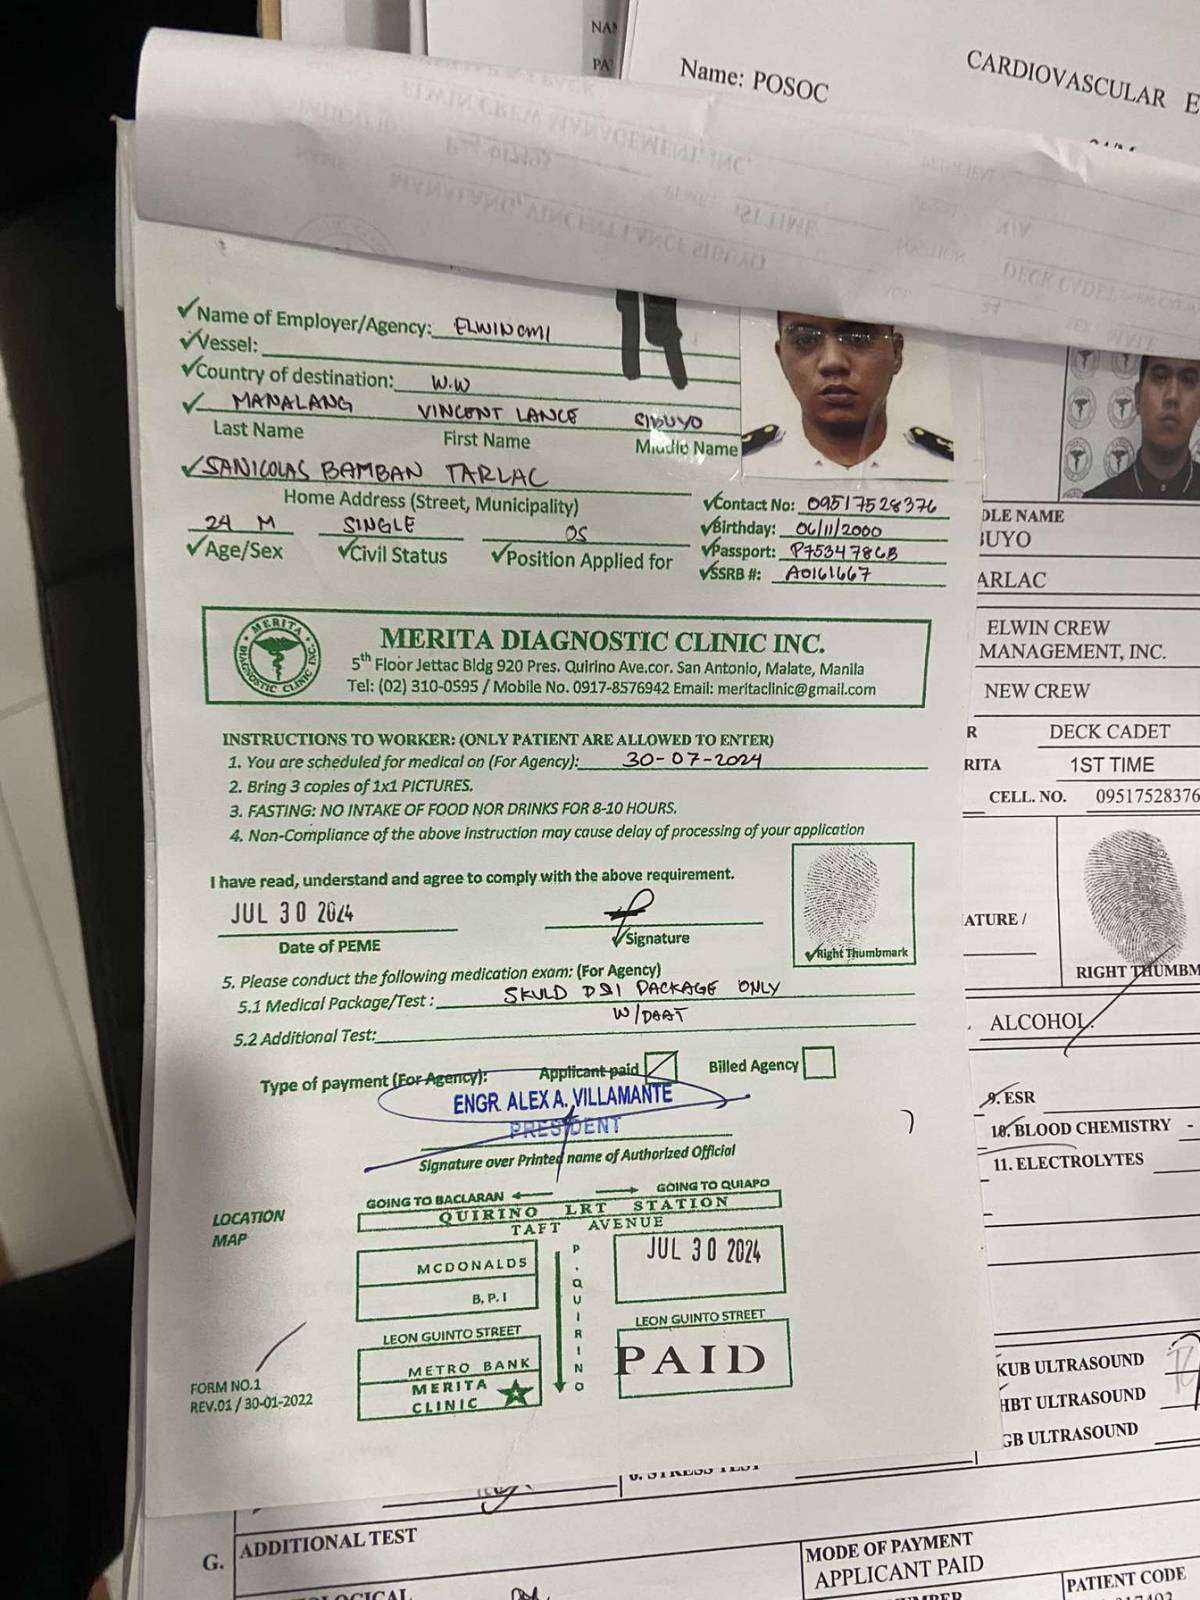 NAM
PA
Name: POSOC
CARDIOVASCULAR E
ELWIN CREW MANAGEMENT, INC.
MANALANG, VINCENT LANCE SIBUYO
1ST TIME
N/A
DECK CADET
24
MALE
✓Name of Employer/Agency: ELWINCMI
✓Vessel:
✓Country of destination: W.W
✓ MANALANG VINCENT LANCE SIBUYO
Last Name First Name Middle Name
✓SANICOLAS BAMBAN TARLAC
Home Address (Street, Municipality)
24 M SINGLE OS
✓Age/Sex ✓Civil Status ✓Position Applied for
✓Contact No: 09517528376
✓Birthday: 06/11/2000
✓Passport: P7534786B
✓SSRB #: A0161667
MERITA DIAGNOSTIC CLINIC INC.
MERITA DIAGNOSTIC CLINIC INC.
5th Floor Jettac Bldg 920 Pres. Quirino Ave.cor. San Antonio, Malate, Manila
Tel: (02) 310-0595 / Mobile No. 0917-8576942 Email: meritaclinic@gmail.com
INSTRUCTIONS TO WORKER: (ONLY PATIENT ARE ALLOWED TO ENTER)
1. You are scheduled for medical on (For Agency): 30-07-2024
2. Bring 3 copies of 1x1 PICTURES.
3. FASTING: NO INTAKE OF FOOD NOR DRINKS FOR 8-10 HOURS.
4. Non-Compliance of the above instruction may cause delay of processing of your application
I have read, understand and agree to comply with the above requirement.
JUL 30 2024
Date of PEME ✓Signature ✓Right Thumbmark
5. Please conduct the following medication exam: (For Agency)
5.1 Medical Package/Test : SKULD DSI PACKAGE ONLY
W/DAAT
5.2 Additional Test:
Type of payment (For Agency): Applicant paid Billed Agency
ENGR. ALEX A. VILLAMANTE
PRESIDENT
Signature over Printed name of Authorized Official
LOCATION
MAP
GOING TO BACLARAN GOING TO QUIAPO
QUIRINO LRT STATION
TAFT AVENUE
MCDONALDS
B.P.I
P.QUIRINO
JUL 30 2024
LEON GUINTO STREET LEON GUINTO STREET
METRO BANK
MERITA
CLINIC
PAID
FORM NO.1
REV.01 / 30-01-2022
DLE NAME
BUYO
ARLAC
ELWIN CREW
MANAGEMENT, INC.
NEW CREW
R DECK CADET
RITA 1ST TIME
CELL. NO. 09517528376
ATURE /
RIGHT THUMBM
ALCOHOL
9. ESR
10. BLOOD CHEMISTRY -
11. ELECTROLYTES
KUB ULTRASOUND
HBT ULTRASOUND
GB ULTRASOUND
6. STRESS TEST
G. ADDITIONAL TEST
MODE OF PAYMENT
APPLICANT PAID
PATIENT CODE